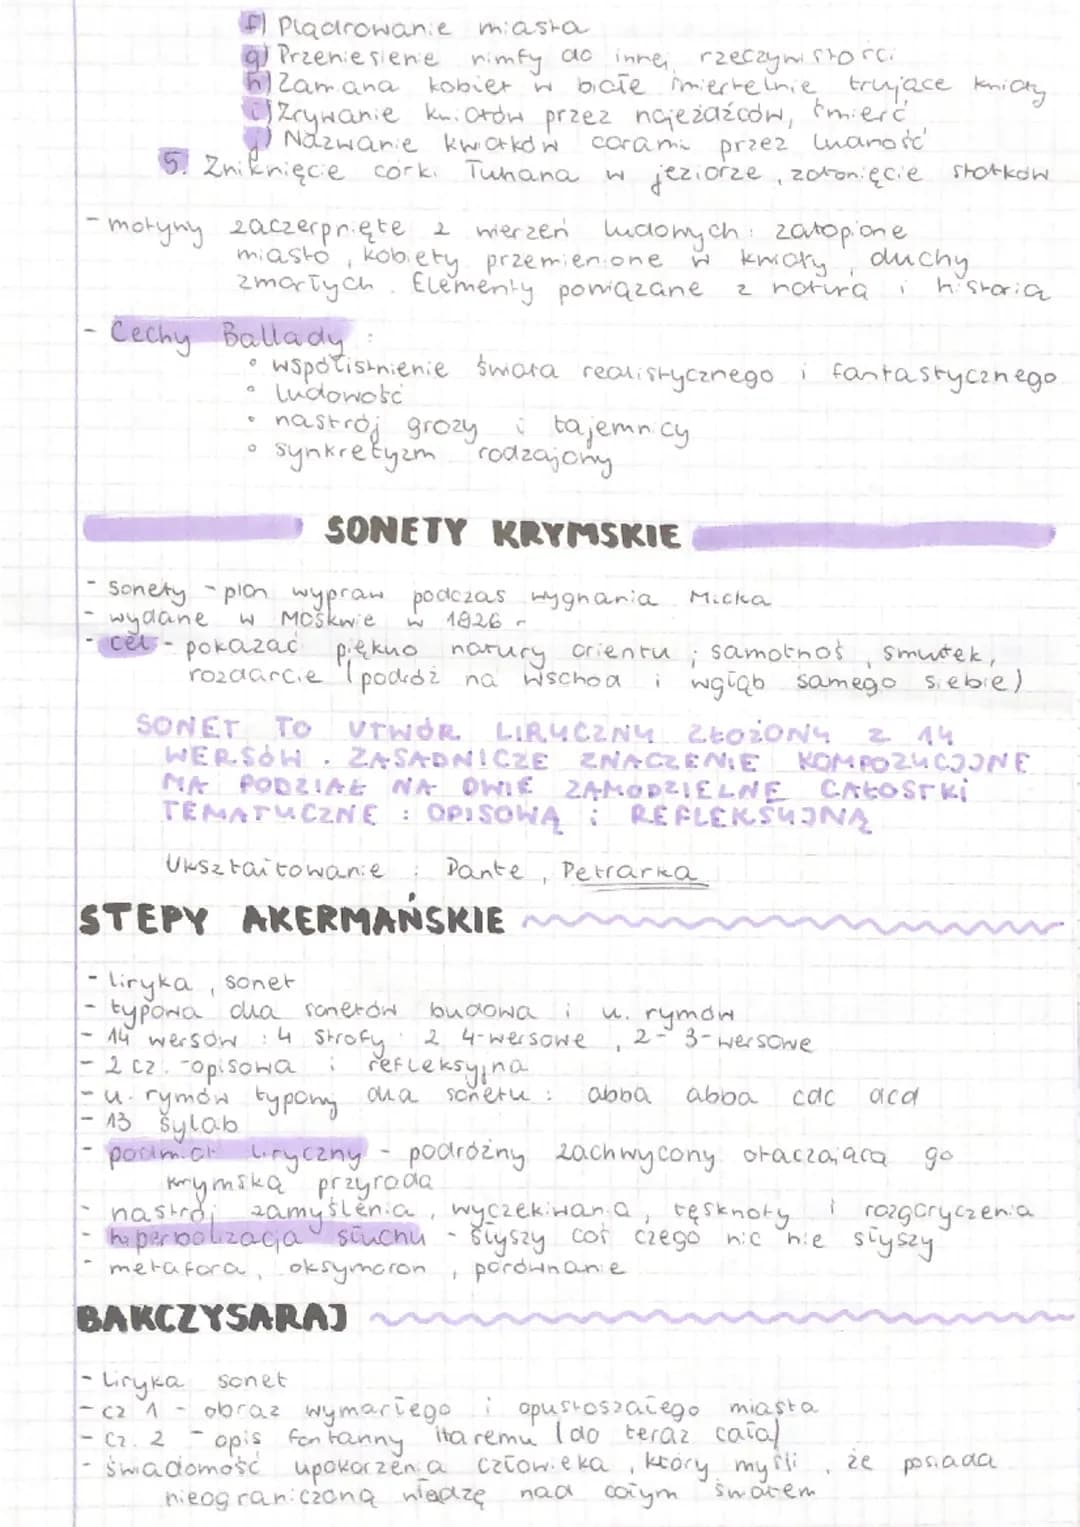 f) Plądrowanie miasta
g) Przeniesienie nimfy do innej rzeczywistości
h) Zamiana kobiet w białe śmiertelnie trujące kwiaty
i) Zrywanie kwiatów przez najeźdźców, śmierć
j) Nazwanie kwiatków carami przez ludność
5. Zniknięcie córki Tuhana w jeziorze, zatonięcie statków
- motywy zaczerpnięte z wierzeń ludowych: zatopione
miasto, kobiety przemienione w kwiaty, duchy
zmarłych. Elementy powiązane z naturą i historią
- Cechy Ballady:
• współistnienie świata realistycznego i fantastycznego
• ludowość
• nastrój grozy i tajemnicy
• synkretyzm rodzajowy
SONETY KRYMSKIE
- sonety - plon wypraw podczas wygnania Micka
- wydane w Moskwie w 1826 r
- cel - pokazać piękno natury orientu; samotnoś, smutek,
rozdarcie (podróż na wschód i wgłąb samego siebie)
SONET TO UTWÓR LIRYCZNY ZŁOŻONY Z 14
WERSÓW. ZASADNICZE ZNACZENIE KOMPOZYCJJNE
MA PODZIAŁ NA DWIE ZAMODZIELNE CAŁOSTKI
TEMATYCZNE: OPISOWĄ i REFLEKSYJNĄ
Ukształtowanie: Dante, Petrarka
STEPY AKERMAŃSKIE
- liryka, sonet
- typowa dla sonetów budowa i u. rymów
- 14 wersów: 4 strofy: 2 4-wersowe, 2 - 3-wersowe
- 2 cz. - opisowa i refleksyjna
- u. rymów typowy dla sonetu: abba abba cdc dcd
- 13 sylab
- podmiot liryczny - podróżny zachwycony otaczającą go
krymską przyrodą
- nastrój zamyślenia, wyczekiwania, tęsknoty i rozgoryczenia
- hiperbolizacja słuchu - słyszy coś czego nic nie słyszy
- metafora, oksymoron, porównanie
BAKCZYSARAJ
- liryka sonet
- cz 1 - obraz wymarłego i opustoszałego miasta
- cz. 2 - opis fontanny Haremu (do teraz cała)
- świadomość upokorzenia człowieka, który myśli, że posiada
nieograniczoną władzę nad całym światem